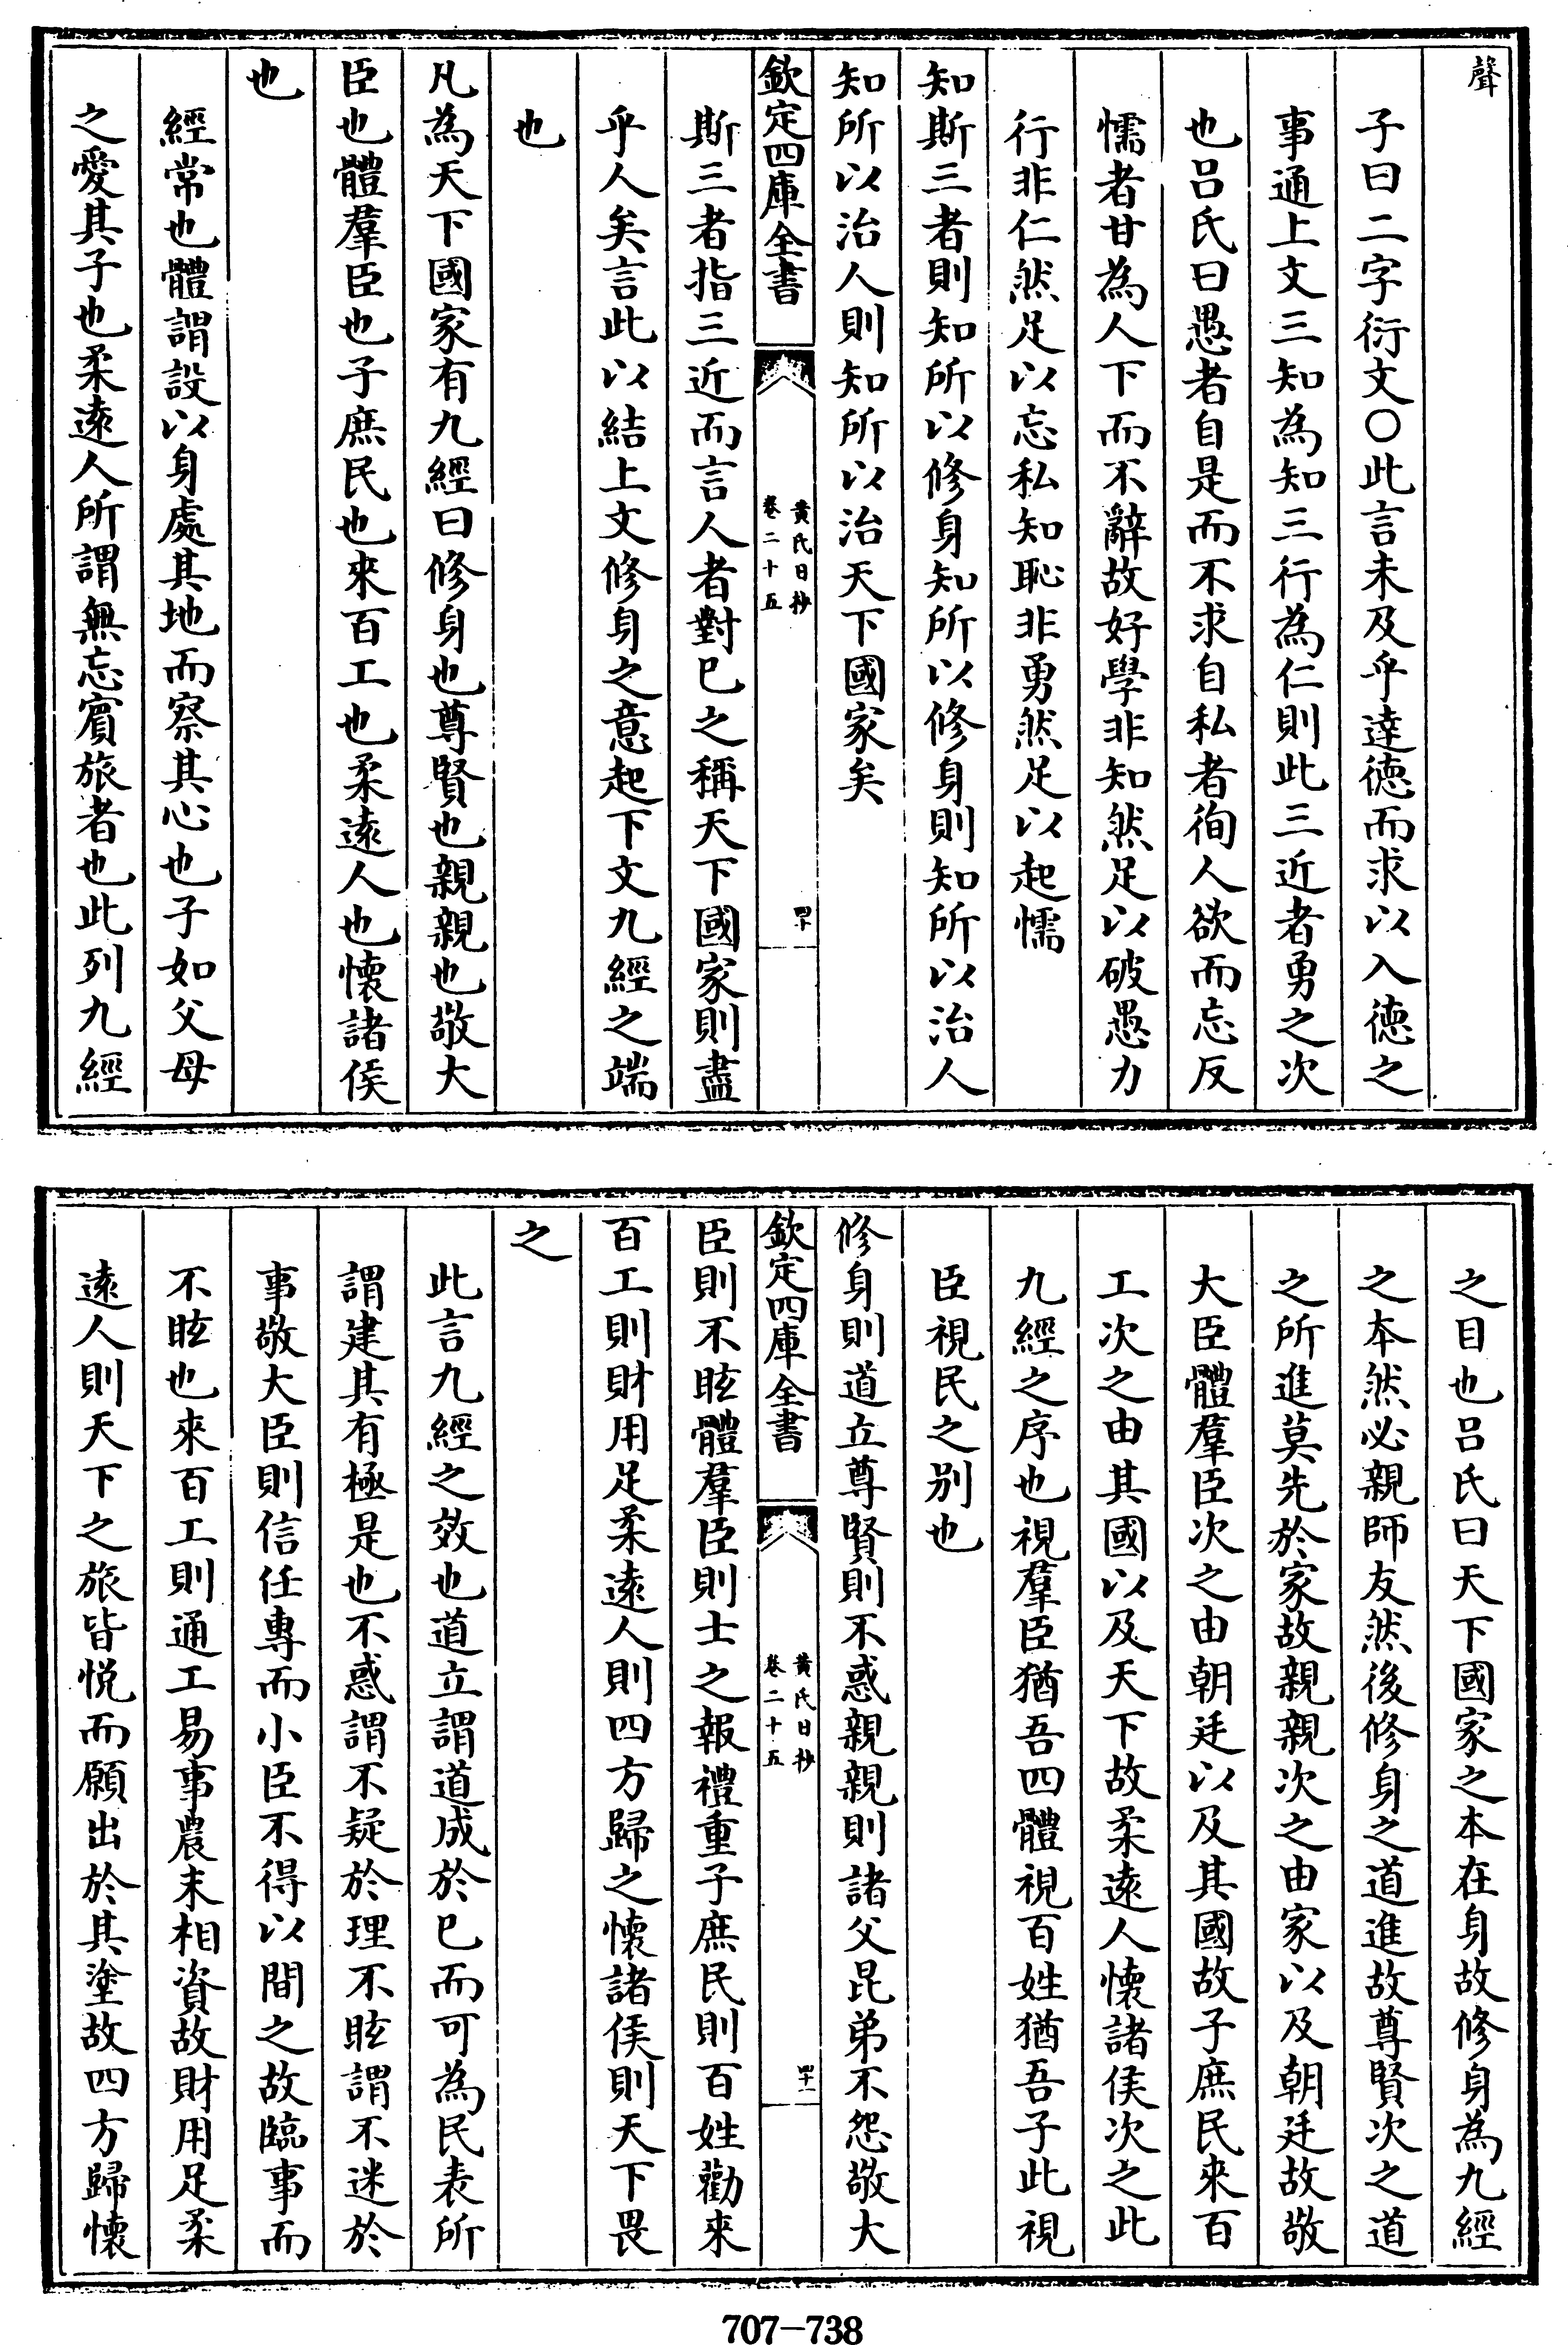 聲
子曰二字衍文〇此言未及乎逹徳而求以入徳之
事通上文三知為知三行為仁則此三近者勇之次
也吕氏曰愚者自是而不求自私者徇人欲而忘反
懦者甘為人下而不辭故好學非知然足以破愚力
行非仁然足以忘私知恥非勇然足以起懦
知斯三者則知所以修身知所以修身則知所以治人
知所以治人則知所以治天下國家矣
欽定四庫全書
黄氏日抄
卷二十五
四十
斯三者指三近而言人者對巳之稱天下國家則盡
乎人矣言此以結上文修身之意起下文九經之端
也
凡為天下國家有九經曰修身也尊賢也親親也敬大
臣也體羣臣也子庶民也來百工也柔逺人也懐諸侯
也
經常也體謂設以身處其地而察其心也子如父母
之愛其子也柔逺人所謂無忘賔旅者也此列九經
之目也吕氏曰天下國家之本在身故修身為九經
之本然必親師友然後修身之道進故尊賢次之道
之所進莫先於家故親親次之由家以及朝廷故敬
大臣體羣臣次之由朝廷以及其國故子庶民來百
工次之由其國以及天下故柔逺人懐諸侯次之此
九經之序也視羣臣猶吾四體視百姓猶吾子此視
臣視民之别也
修身則道立尊賢則不惑親親則諸父昆弟不怨敬大
欽定四庫全書
黄氏日抄
卷二十五
四十一
臣則不眩體羣臣則士之報禮重子庶民則百姓勸來
百工則財用足柔逺人則四方歸之懐諸侯則天下畏
之
此言九經之效也道立謂道成於巳而可為民表所
謂建其有極是也不惑謂不疑於理不眩謂不迷於
事敬大臣則信任專而小臣不得以間之故臨事而
不眩也來百工則通工易事農末相資故財用足柔
逺人則天下之旅皆悦而願出於其塗故四方歸懐
707-738